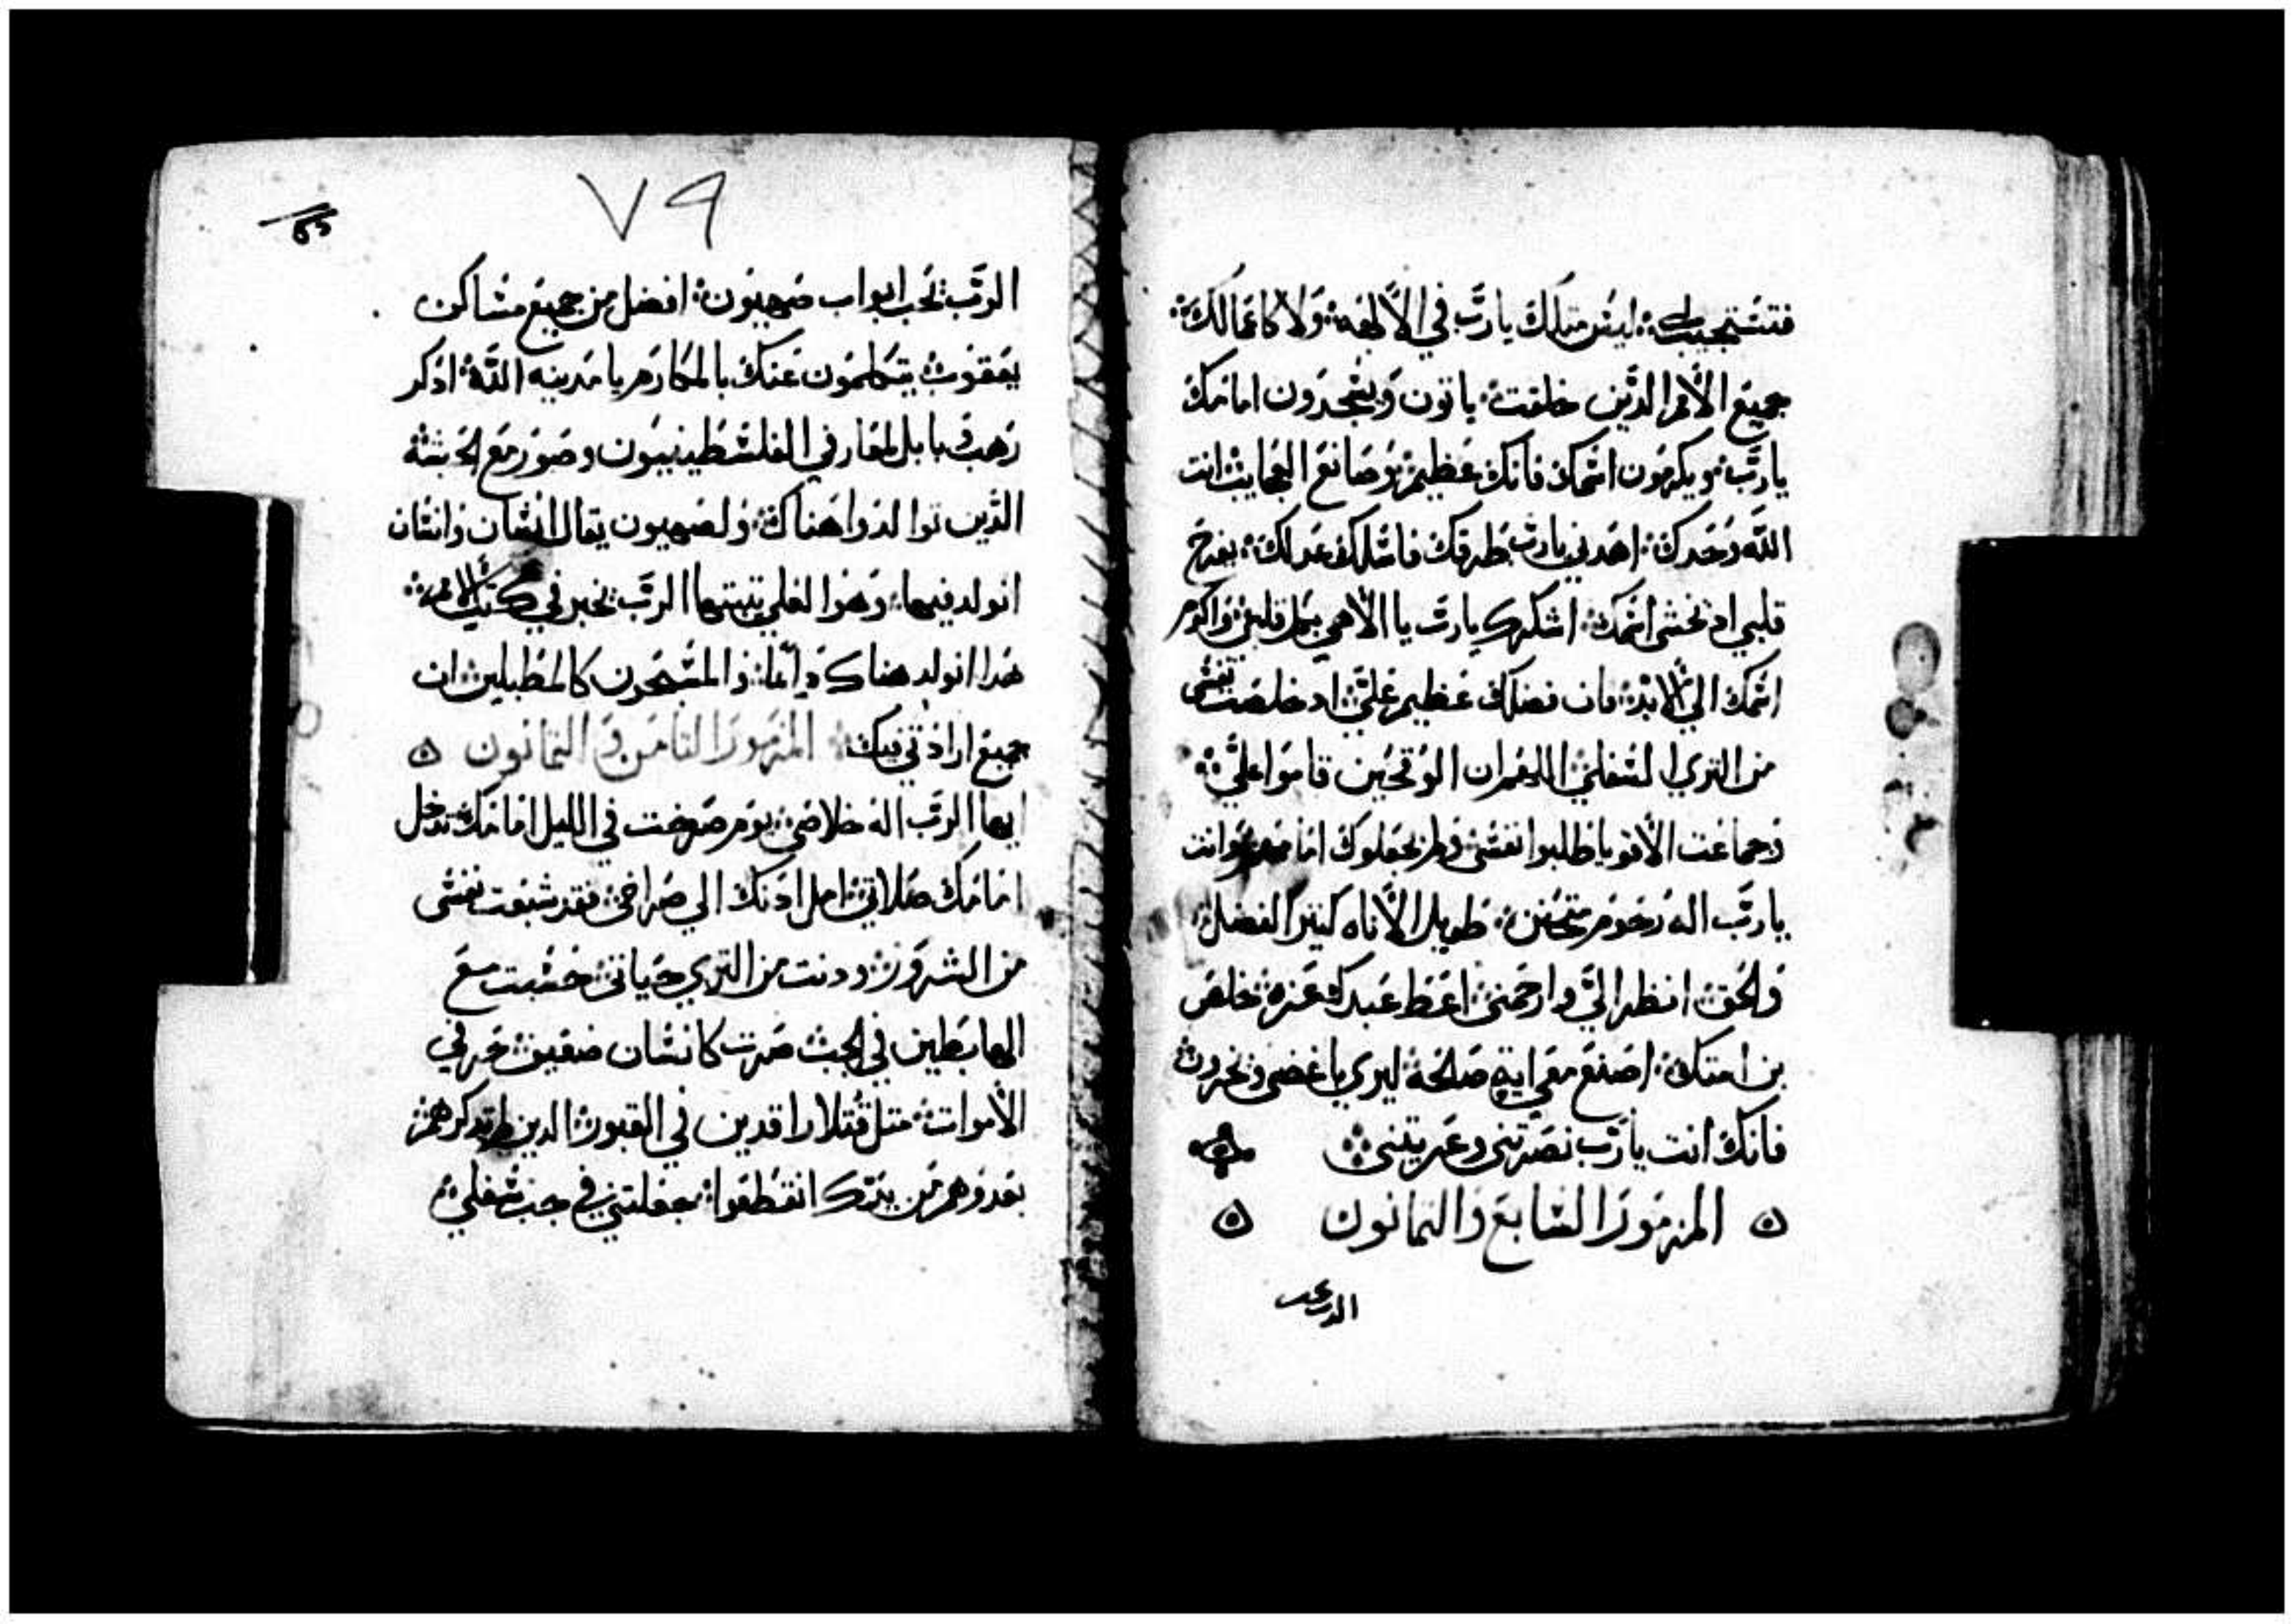 فتستجيب لي ليس متلك يا رب في الالهه ولا كاعمالك
جميع الامم الذين خلقت ياتون ويسجدون امامك
يا رب ويكرمون اسمك فانك عظيم وصانع العجايب انت
الله وحدك اهدني يا رب طرقك فاسلك عدلك يفرح
قلبي اذ تخشى اسمك اشكرك يا رب يا الاهي بكل قلبي واكرم
اسمك الي الابد فان فضلك عظيم علي اد خلصت نفسي
من التري السفلي اللهم ان الوقحين قاموا علي
وجماعت الاقويا طلبوا نفسي ولم يجعلوك امامهم وانت
يا رب اله رحوم متحنن طويل الاناه كتير الفضل
والحق انظر الي وارحمني اعط عبدك عزه خلص
بن امتك اصنع معي ايه صالحه ليري باغضي ويخزون
فانك انت يا رب نصرتني وعزيتني
المزمور السابع والثمانون
الرب يحب
٧٩
الرب يحب ابواب صهيون افضل من جميع مساكن
يعقوب يتكلمون عنك بالمكارم يا مدينه الله اذكر
رهب وبابل لمعارفي الفلسطينييون وصور مع الحبشه
الذين توالدوا هناك ولصهيون يقال انسان وانسان
انولد فيها وهوا لعلي يتبتها الرب يخبر في كتب الامم
هدا انولد هناك دايما والمسبحون كالمطبلين ان
جميع ارادتي فيك المزمور الثامن و الثمانون
ايها الرب اله خلاصي يوم صرخت في الليل امامك تدخل
امامك صلاتي امل ادنك الي صراخي فقد شبعت نفسي
من الشرور ودنت من التري حياتي حسبت مع
الهابطين في الجب صرت كانسان ضعيف حر في
الاموات متل قتلا راقدين في القبور الدين لم تدكرهم
بعد وهم من يدك انقطعوا جعلتني في جب سفلي